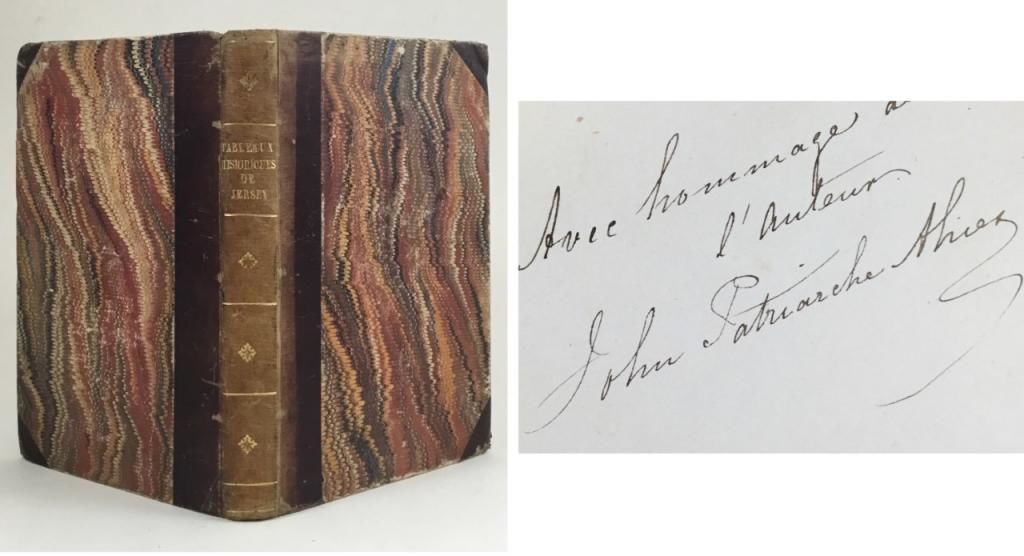 TABLEAUX
HISTORIQUES
DE
JERSEY
Avec hommage
l'auteur
John Patriarche Ahier